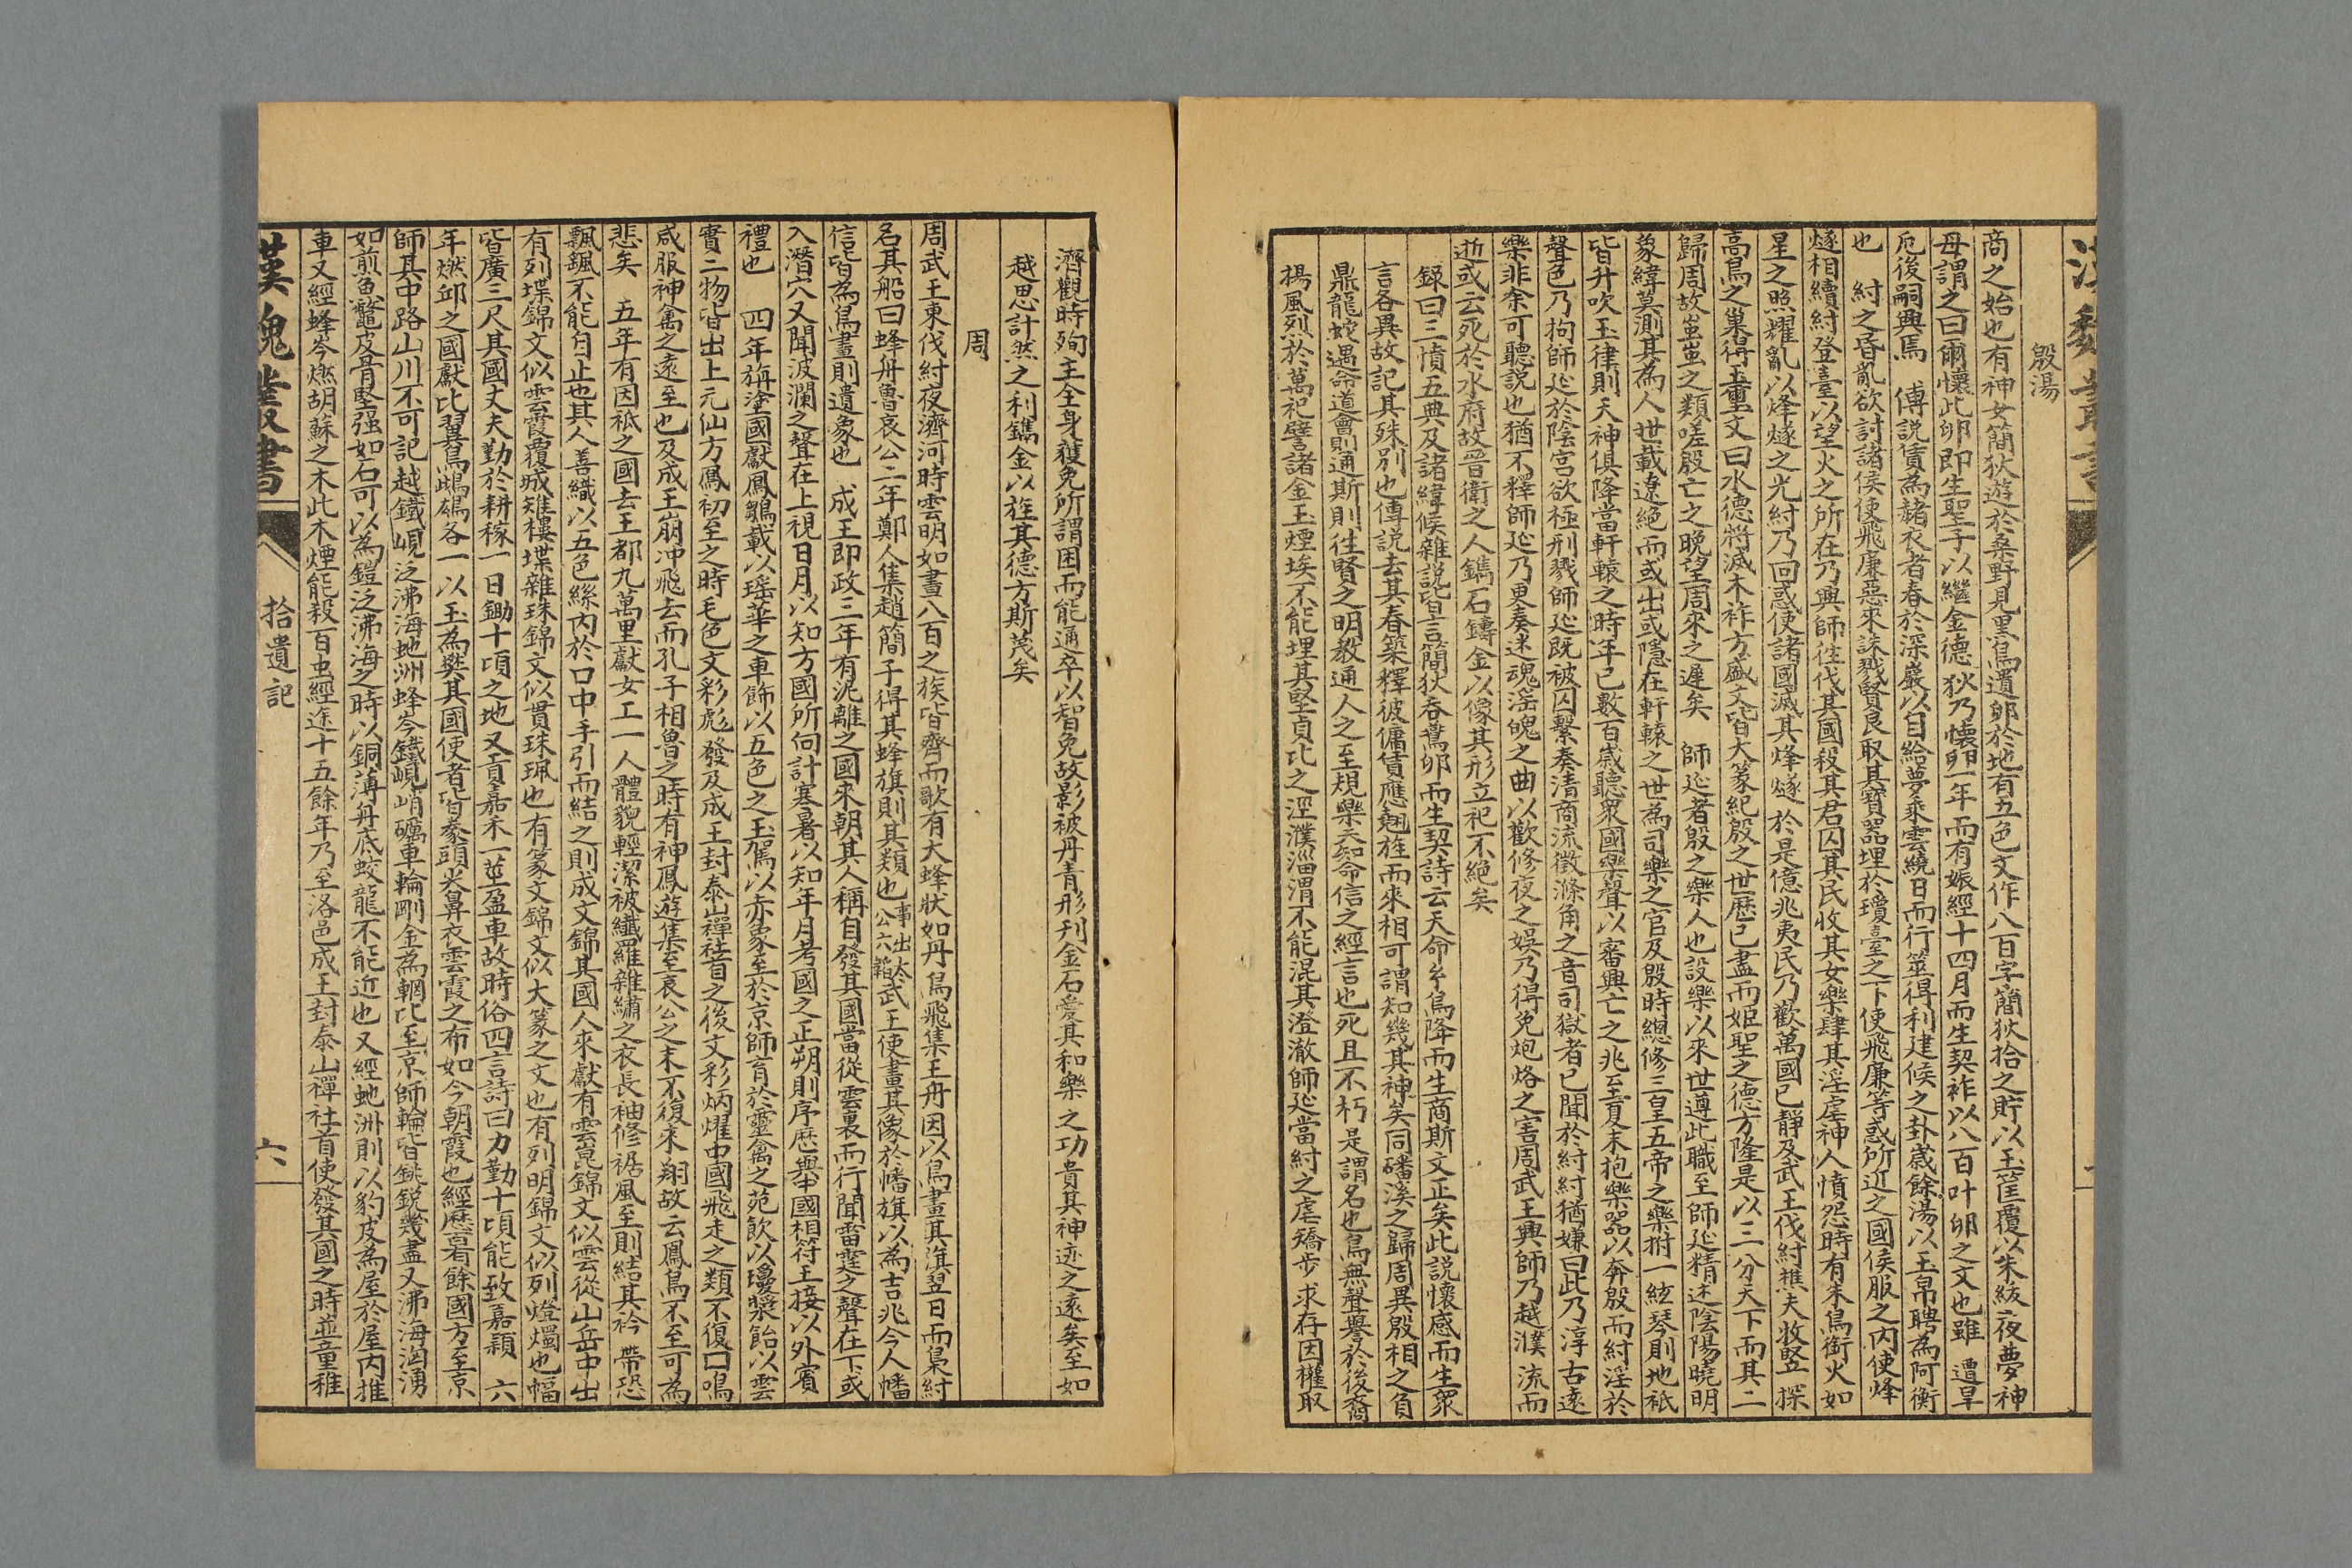 殷湯
商之始也有神女簡狄遊於桑野見黑鳥遺卵於地有五色文作八百字簡狄拾之貯以玉筐覆以朱紱夜夢神
母謂之曰爾懷此卵即生聖子以繼金德狄乃懷卵一年而有娠經十四月而生契祚以八百叶卵之文也雖遭旱
厄後嗣興焉　傅説賃為赭衣者舂於深巖以自給夢乘雲繞日而行筮得利建侯之卦歲餘湯以玉帛聘為阿衡
也　紂之昏亂欲討諸侯使飛廉惡來誅戮賢良取其寶器埋於瓊臺之下使飛廉等惑所近之國侯服之内使烽
燧相續紂登臺以望火之所在乃興師往伐其國殺其君囚其民收其女樂肆其淫虐神人憤怨時有朱鳥銜火如
星之照耀亂以烽燧之光紂乃回惑使諸國滅其烽燧於是億兆夷民乃歡萬國已靜及武王伐紂樵夫牧豎探
高鳥之巢得玉璽文曰水德將滅木祚方盛文皆大篆紀殷之世歷已盡而姬聖之德方隆是以三分天下而其二
歸周故蚩蚩之類嗟殷亡之晚望周來之遲矣　師延者殷之樂人也設樂以來世遵此職至師延精述陰陽曉明
象緯莫測其為人世載遼絕而或出或隱在軒轅之世為司樂之官及殷時總修三皇五帝之樂拊一絃琴則地祇
皆升吹玉律則天神俱降當軒轅之時年已數百歲聽衆國樂聲以審興亡之兆至夏末抱樂器以奔殷而紂淫於
聲色乃拘師延於陰宮欲極刑戮師延既被囚繫奏清商流徵滌角之音司獄者已聞於紂紂猶嫌曰此乃淳古遠
樂非余可聽説也猶不釋師延乃更奏迷魂淫魄之曲以歡修夜之娛乃得免炮烙之害周武王興師乃越濮流而
逝或云死於水府故晉衛之人鐫石鑄金以像其形立祀不絕矣
錄曰三墳五典及諸緯候雜説皆言簡狄吞鷰卵而生契詩云天命玄鳥降而生商斯文正矣此説懷感而生衆
言各異故記其殊別也傅説去其舂築釋彼傭賃應翹旌而來相可謂知幾其神矣同磻溪之歸周異殷相之負
鼎龍蛇遇命道會則通斯則往賢之明教通人之至規樂天知命信之經言也死且不朽是謂名也烏無聲譽於後裔
揚風烈於萬祀譬諸金玉煙埃不能埋其堅貞比之涇濮淄渭不能混其澄澈師延當紂之虐矯步求存因權取
濟觀時殉主全身獲免所謂困而能通卒以智免故影被丹青形刋金石愛其和樂之功貴其神迹之遠矣至如
越思計然之利鐫金以旌其德方斯蔑矣
周
周武王東伐紂夜濟河時雲明如晝八百之族皆齊而歌有大蜂狀如丹鳥飛集王舟因以鳥畫其旗翌日而梟紂
名其船曰蜂舟魯哀公二年鄭人集趙簡子得其蜂旗則其類也事出太公六韜武王使畫其像於幡旗以為吉兆今人幡
信皆為鳥畫則遺象也　成王即政三年有泥離之國來朝其人稱自發其國當從雲裏而行聞雷霆之聲在下或
入潛穴又聞波瀾之聲在上視日月以知方國所向計寒暑以知年月考國之正朔則序歷與中國相符王接以外賓
禮也　四年旃塗國獻鳳雛載以瑶華之車飾以五色之玉駕以赤象至於京師育於靈禽之苑飲以瓊漿飴以雲
實二物皆出上元仙方鳳初至之時毛色文彩彪發及成王封泰山禪社首之後文彩炳燿中國飛走之類不復口鳴
咸服神禽之遠至也及成王崩冲飛去而孔子相魯之時有神鳳遊集至哀公之末不復來翔故云鳳鳥不至可為
悲矣　五年有因祇之國去王都九萬里獻女工一人體貌輕潔被纖羅雜繡之衣長袖修裾風至則結其衿帶恐
飄颻不能自止也其人善織以五色絲内於口中手引而結之則成文錦其國人來獻有雲崑錦文似雲從山岳中出
有列堞錦文似雲霞覆城雉樓堞雜珠錦文似貫珠珮也有篆文錦文似大篆之文也有列明錦文似列燈燭也幅
皆廣三尺其國丈夫勤於耕稼一日鋤十頃之地又貢嘉禾一莖盈車故時俗四言詩曰力勤十頃能致嘉穎　六
年燃邱之國獻比翼鳥雌雄各一以玉為樊其國使者皆豢頭尖鼻衣雲霞之布如今朝霞也經歷百有餘國方至京
師其中路山川不可記越鐵峴泛沸海虵洲蜂岑鐵峴峭礪車輪剛金為輞比至京師輪皆銚銳幾盡又沸海洶湧
如煎魚鼈皮骨堅强如石可以為鎧泛沸海之時以銅薄舟底蛟龍不能近也又經虵洲則以豹皮為屋於屋内推
車又經蜂岑燃胡蘇之木此木煙能殺百虫經途十五餘年乃至洛邑成王封泰山禪社首使發其國之時並童稚
漢魏叢書
拾遺記
六